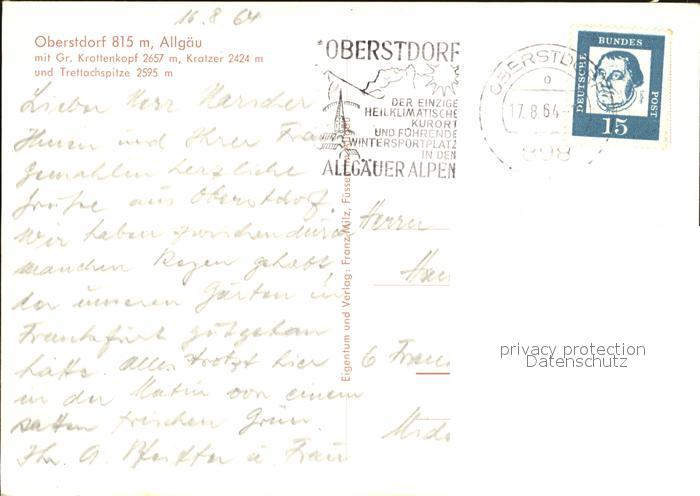 16.8.64
Oberstdorf 815 m, Allgäu
mit Gr. Krottenkopf 2657 m, Kratzer 2424 m
und Trettachspitze 2595 m
Lieber Herr
Ihnen und Ihrer Frau
Gemahlin herzliche
Grüße aus Oberstdorf.
Wir haben zwischendurch
manchen Regen gehabt,
der unseren Gärten in
Frankfurt gutgetan
hätte. Alles trotzt hier
in der Natur von einem
satten frischen Grün.
Ihr A. u Frau
OBERSTDORF
DER EINZIGE
HEILKLIMATISCHE
KURORT
UND FÜHRENDE
WINTERSPORTPLATZ
IN DEN
ALLGÄUER ALPEN
OBERSTDORF
17.8.64
898
DEUTSCHE BUNDES POST
15
Eigentum und Verlag: Franz Milz, Füssen
Herrn
6 Fran
privacy protection
Datenschutz